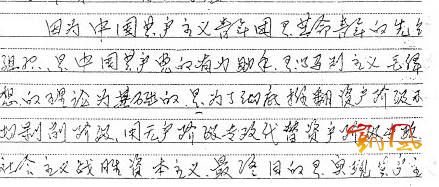 因为中国共产主义青年团是革命青年的先进
组织、是中国共产党的有力助手、是以马列主义毛泽
想的理论为基础的、是为了彻底推翻资产阶级和
切剥削阶级、用无产阶级专政代替资产阶级专政
社会主义战胜资本主义、最终目的是实现共产主